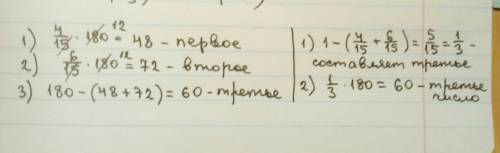 1) 4/15 · 180 12 = 48 - первое
2) 6/15 · 180 12 = 72 - второе
3) 180 - (48 + 72) = 60 - третье
1) 1 - (4/15 + 6/15) = 5/15 = 1/3 -
составляет третье
2) 1/3 · 180 = 60 - третье
число